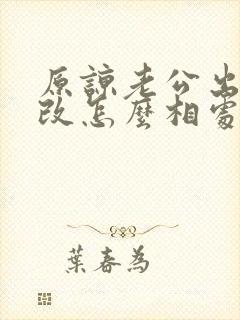 原諒老公出
改怎麼相處
葉春為